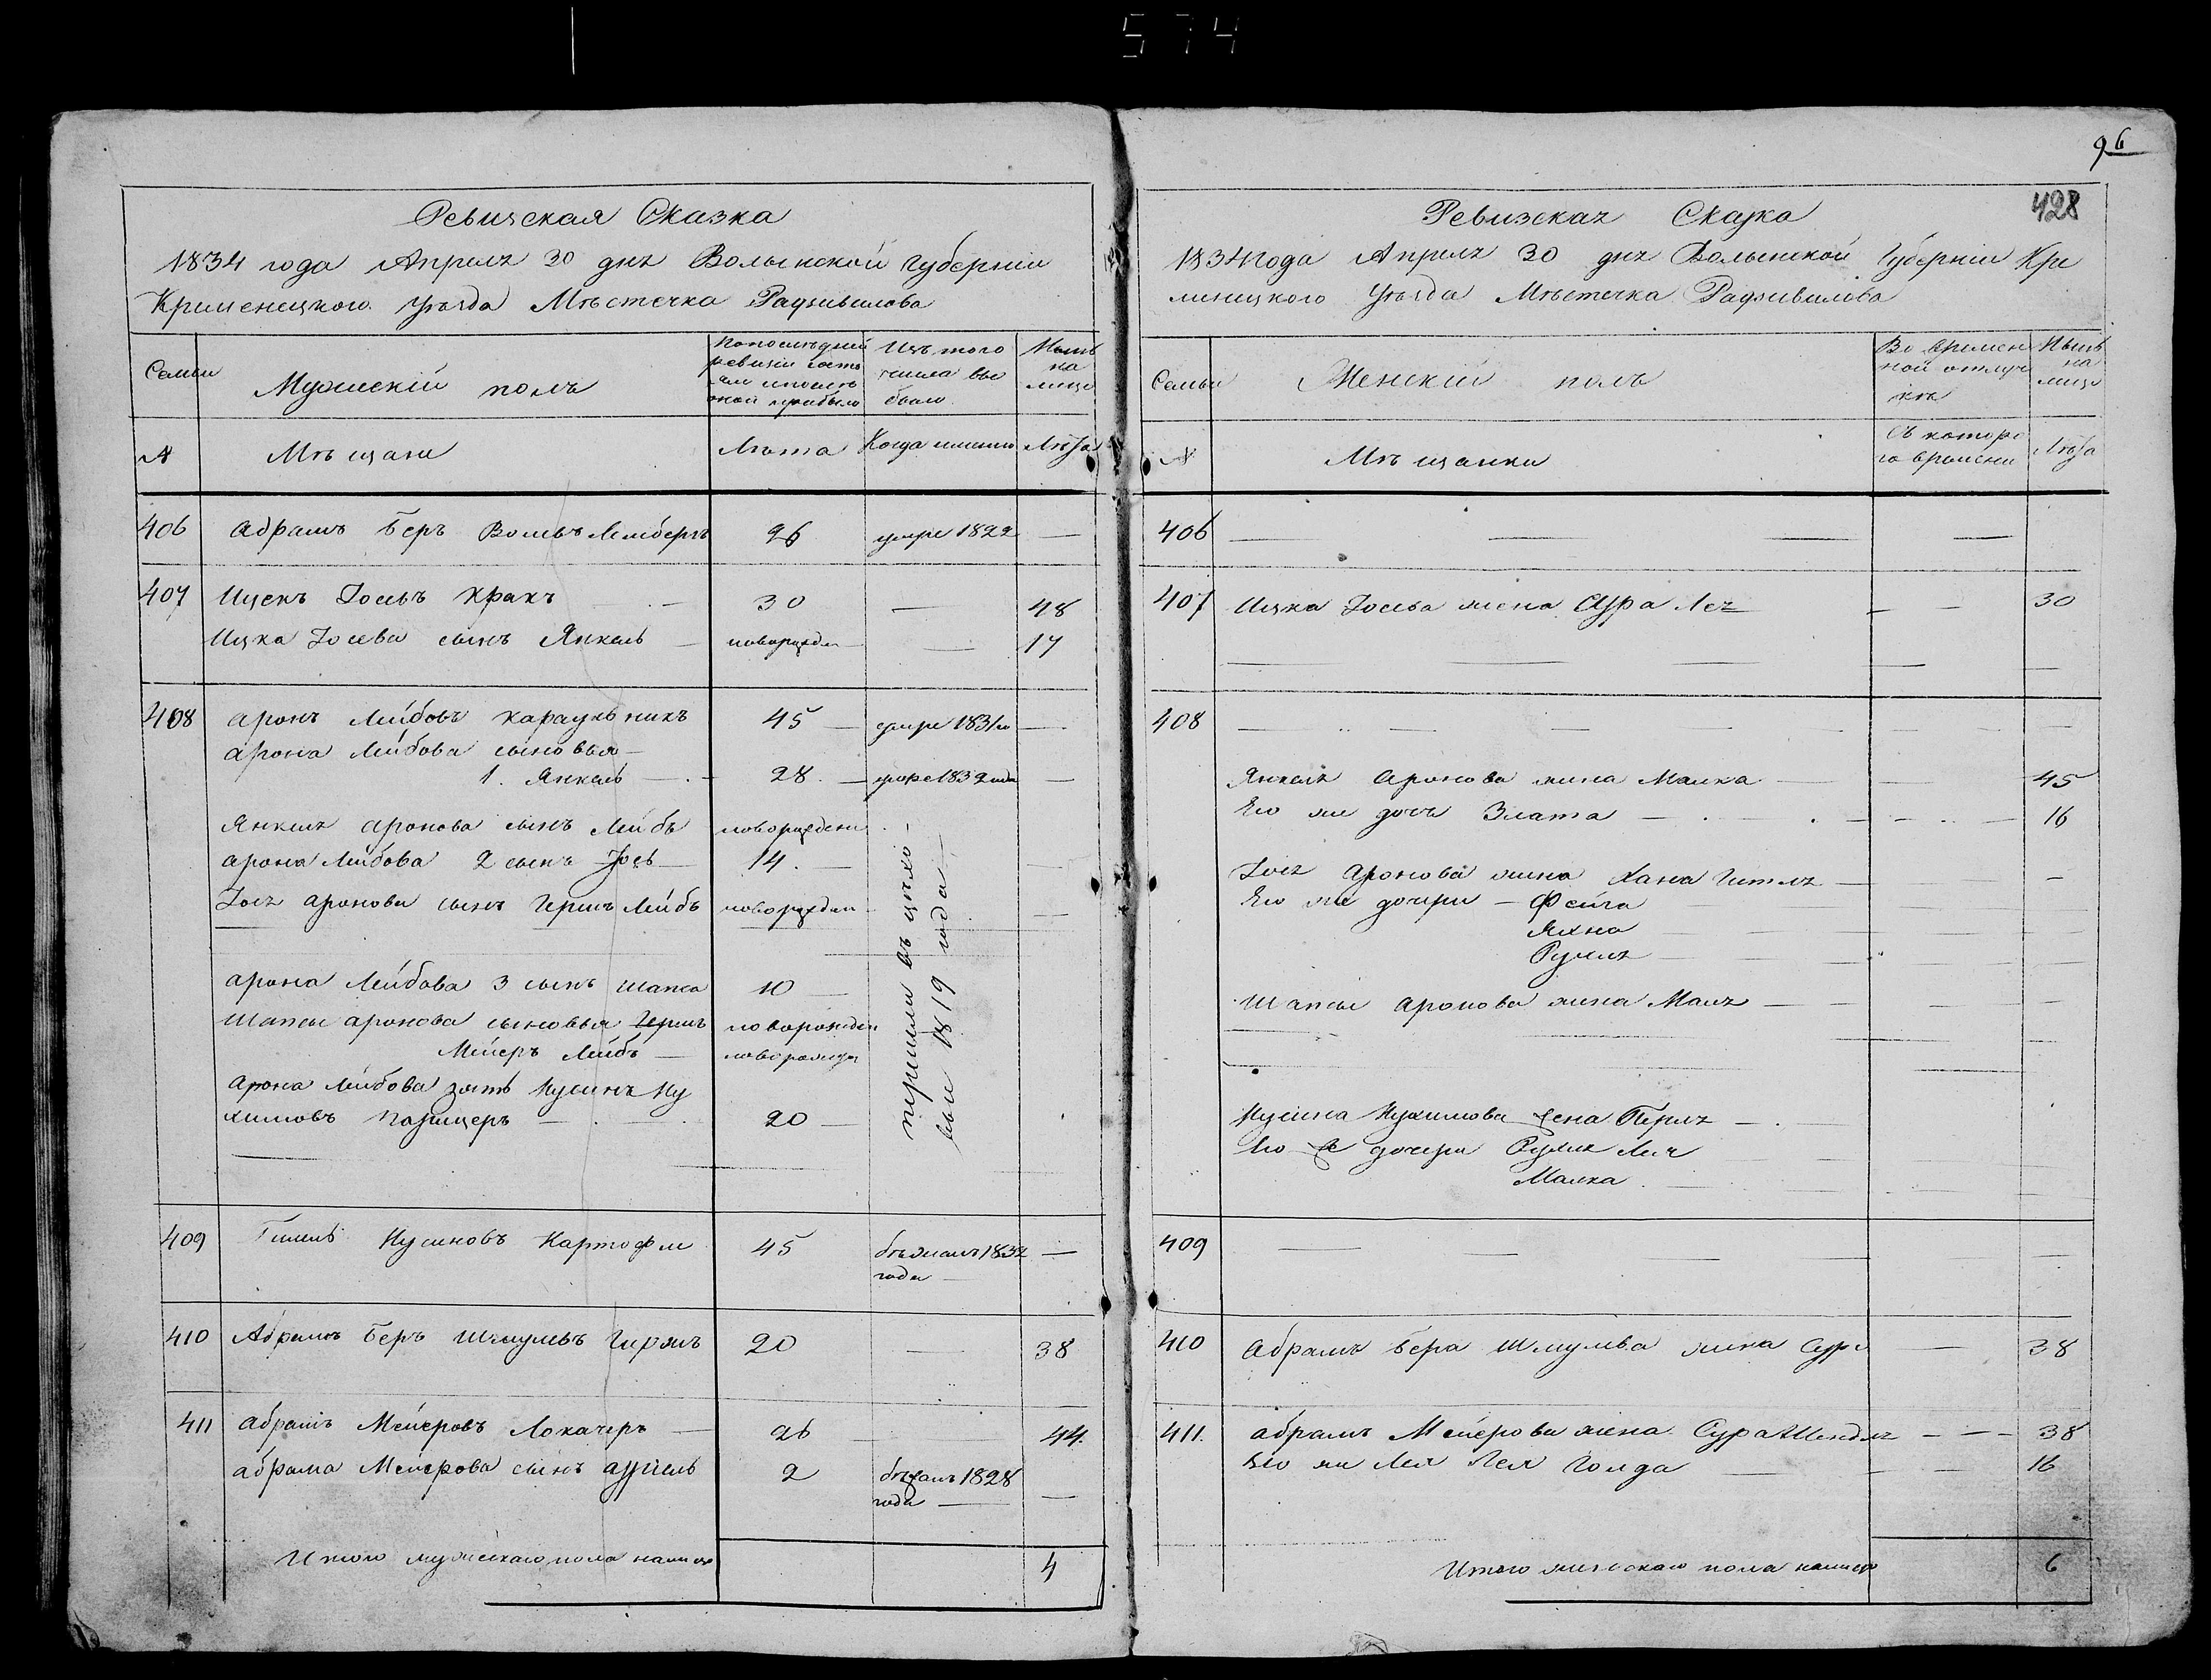 574
Ревизская Сказка
1834 года Апреля 30 дня Волынской губернии
Кременецкого уѣзда Мѣстечка Радзивилова
Семьи
Мужескій полъ
По последней
ревизіи состо
яло и после
оной прибыло
Изъ того
числа вы
было
Нынѣ
на
лицо
№
Мѣщане
Лѣта
Когда именно
Лѣта
406 Абрамъ Беръ Вольвъ Лемберъ 26 умре 1822 —
407 Ицекъ Іосьвъ Кракъ 30 — 48
Ицка Іосева сынъ Янкель новорожден — 17
408 Аронъ Лейбовъ Караульникъ 45 умре 1831го —
Арона Лейбова сыновья
1. Янкель 28 умре 1832 года —
Янкеля Аронова сынъ Лейбъ новорожден
Арона Лейбова 2 сынъ Іось 14
Іося Аронова сынъ Гершъ Лейбъ новорожден
Арона Лейбова 3 сынъ Шапса 10
Шапсы Аронова сыновья Гершъ новорожден
Мейеръ Лейбъ новорожден
Арона Лейбова зять Нусинъ Ну
химовъ 20
1819 года
409 Нусиновъ Картофли 45 бежалъ 1832 —
года
410 Абрамъ Беръ Шмулевъ 20 — 38
411 Абрамъ Мейеровъ Локачеръ 26 44
Абрама Мейерова сынъ Азріель 2 бѣжалъ 1828 —
года
Итого мужескаго пола налицо 4
96
428
Ревизская Сказка
1834 года Апреля 30 дня Волынской Губерніи Кре
менецкого Уѣзда Мѣстечка Радзивилова
Семьи
Женскій полъ
Во времен
ной отлуч
кѣ
Нынѣ
на
лицо
№
Мѣщанки
Съ которо
го времени
Лѣта
406 — — — —
407 Ицка Іосева жена Сура Лея — — 30
408 — — — —
Янкеля Аронова жена Малка 45
Его же дочь Злата 16
Іося Аронова жена Хана Гитля —
Его же дочери — Фейга
Яхна
Рухля
Шапсы Аронова жена Маля
Нусина Нухимова жена Перля
Его же дочери Рухля Лея
Малка
409 — — — —
410 Абрама Бера Шмулева жена Сура — 38
411. Абрама Мейерова жена Сура Шендля — — 38
Его же Лея Голда 16
Итого женскаго пола налицо 6